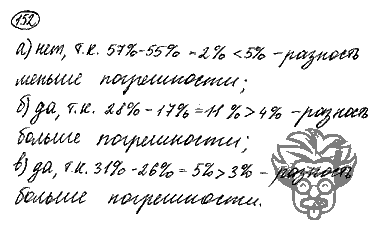 152
а) нет, т.к. 57% - 55% = 2% < 5% - разность
меньше погрешности;
б) да, т.к. 28% - 17% = 11% > 4% - разность
больше погрешности;
в) да, т.к. 31% - 26% = 5% > 3% - разность
больше погрешности.